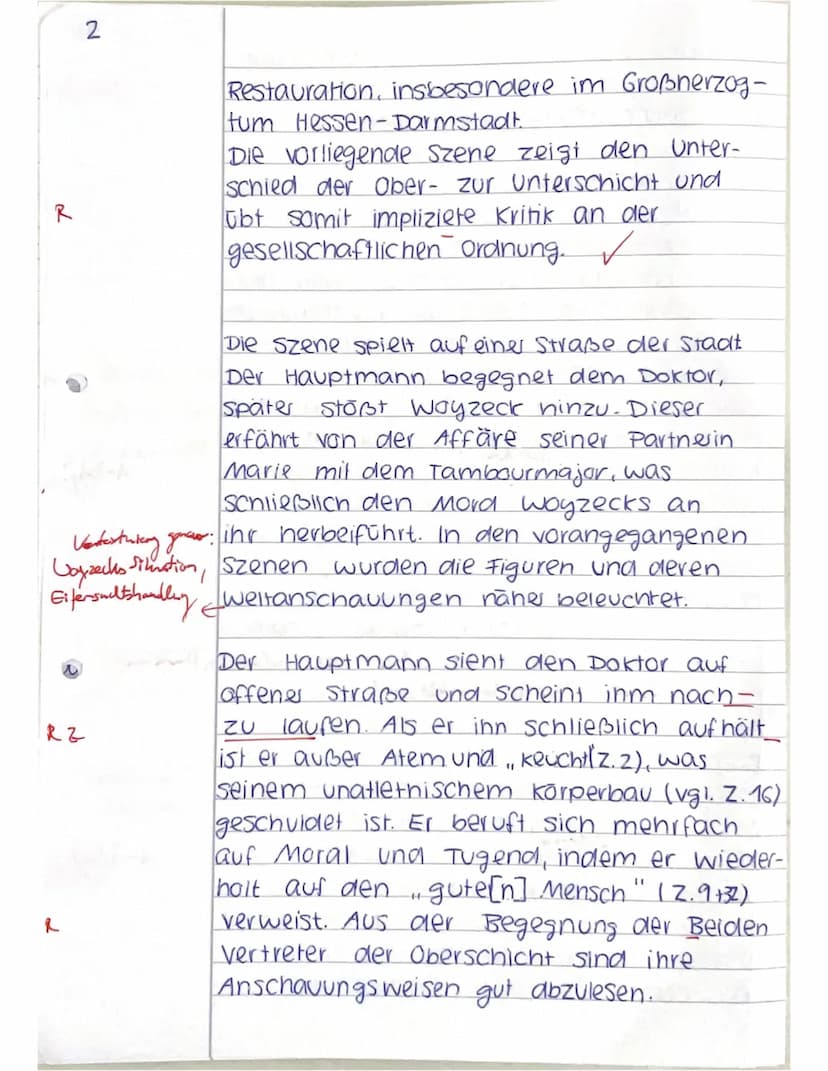 2
Restauration, insbesondere im Großherzog-
tum Hessen-Darmstadt.
Die vorliegende Szene zeigt den Unter-
schied der Ober- zur Unterschicht und
R
übt somit impliziete Kritik an der
gesellschaftlichen Ordnung. ✓
Die Szene spielt auf einer Straße der Stadt
Der Hauptmann begegnet dem Doktor,
später stößt Woyzeck hinzu. Dieser
erfährt von der Affäre seiner Partnerin
Marie mit dem Tambourmajor, was
schließlich den Mord Woyzecks an
ihr herbeiführt. In den vorangegangenen
genauer:
Szenen wurden die Figuren und deren
Woyzecks Situation,
Weltanschauungen näher beleuchtet.
Eifersuchtshandlung
Der Hauptmann sieht den Doktor auf
offener Straße und scheint ihm nach-
R Z
zu laufen. Als er ihn schließlich aufhält
ist er außer Atem und „keucht“(Z.2), was
seinem unathletnischem Körperbau (vgl. Z.16)
geschuldet ist. Er beruft sich mehrfach
auf Moral und Tugend, indem er wieder-
holt auf den „gute[n] Mensch" (Z.9+32)
R
verweist. Aus der Begegnung der Beiden
Vertreter der Oberschicht sind ihre
Anschauungsweisen gut abzulesen.